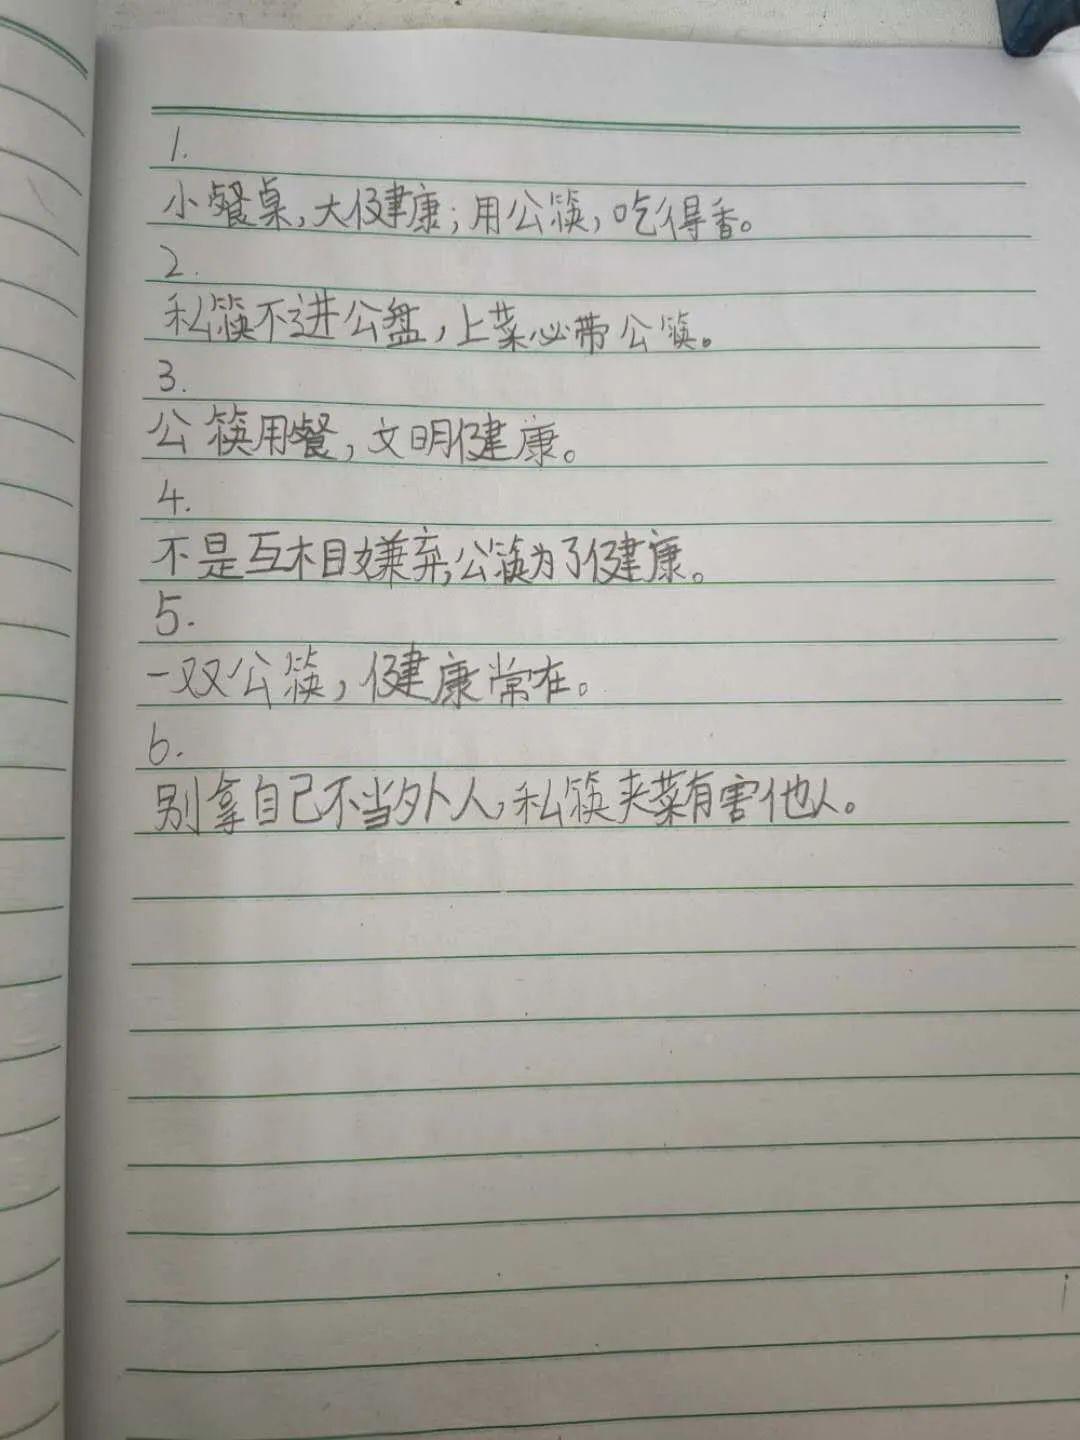 1.
小餐桌,大健康;用公筷,吃得香。
2.
私筷不进公盘,上菜必带公筷。
3.
公筷用餐,文明健康。
4.
不是互相嫌弃,公筷为了健康。
5.
一双公筷,健康常在。
6.
别拿自己不当外人,私筷夹菜有害他人。